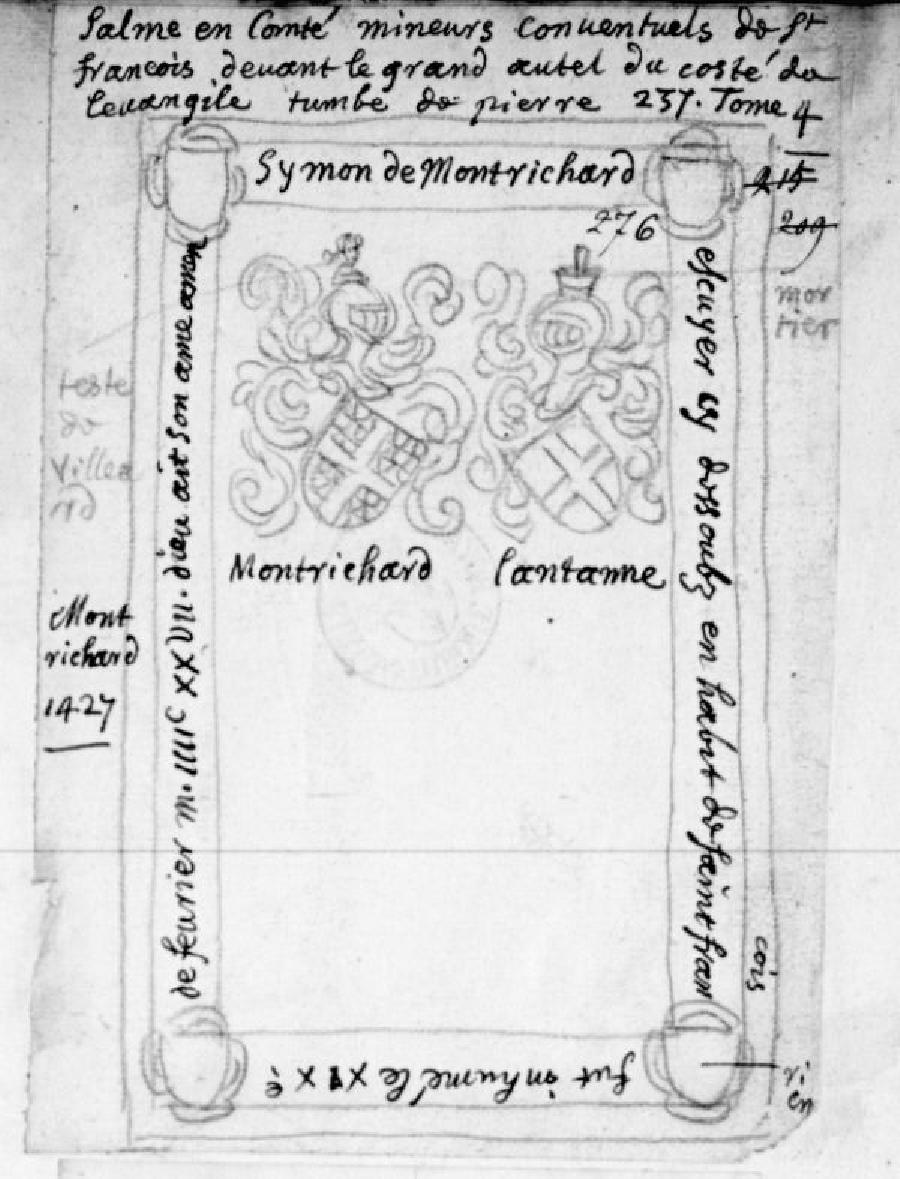 Salme en Comté mineurs conuentuels de St
francois deuant le grand autel du costé de
leuangile tumbe de pierre 237. Tome 4
Symon de Montrichard
415
276
209
mor
tier
escuyer cy dessoubz en habit de saint fran
cois
fut inhumé le XIXe
de feurier m. IIIIc XXVII. dieu ait son ame amen
teste
de
Villea
rd
Montrichard
Cantanne
Mont
richard
1427
ri
en